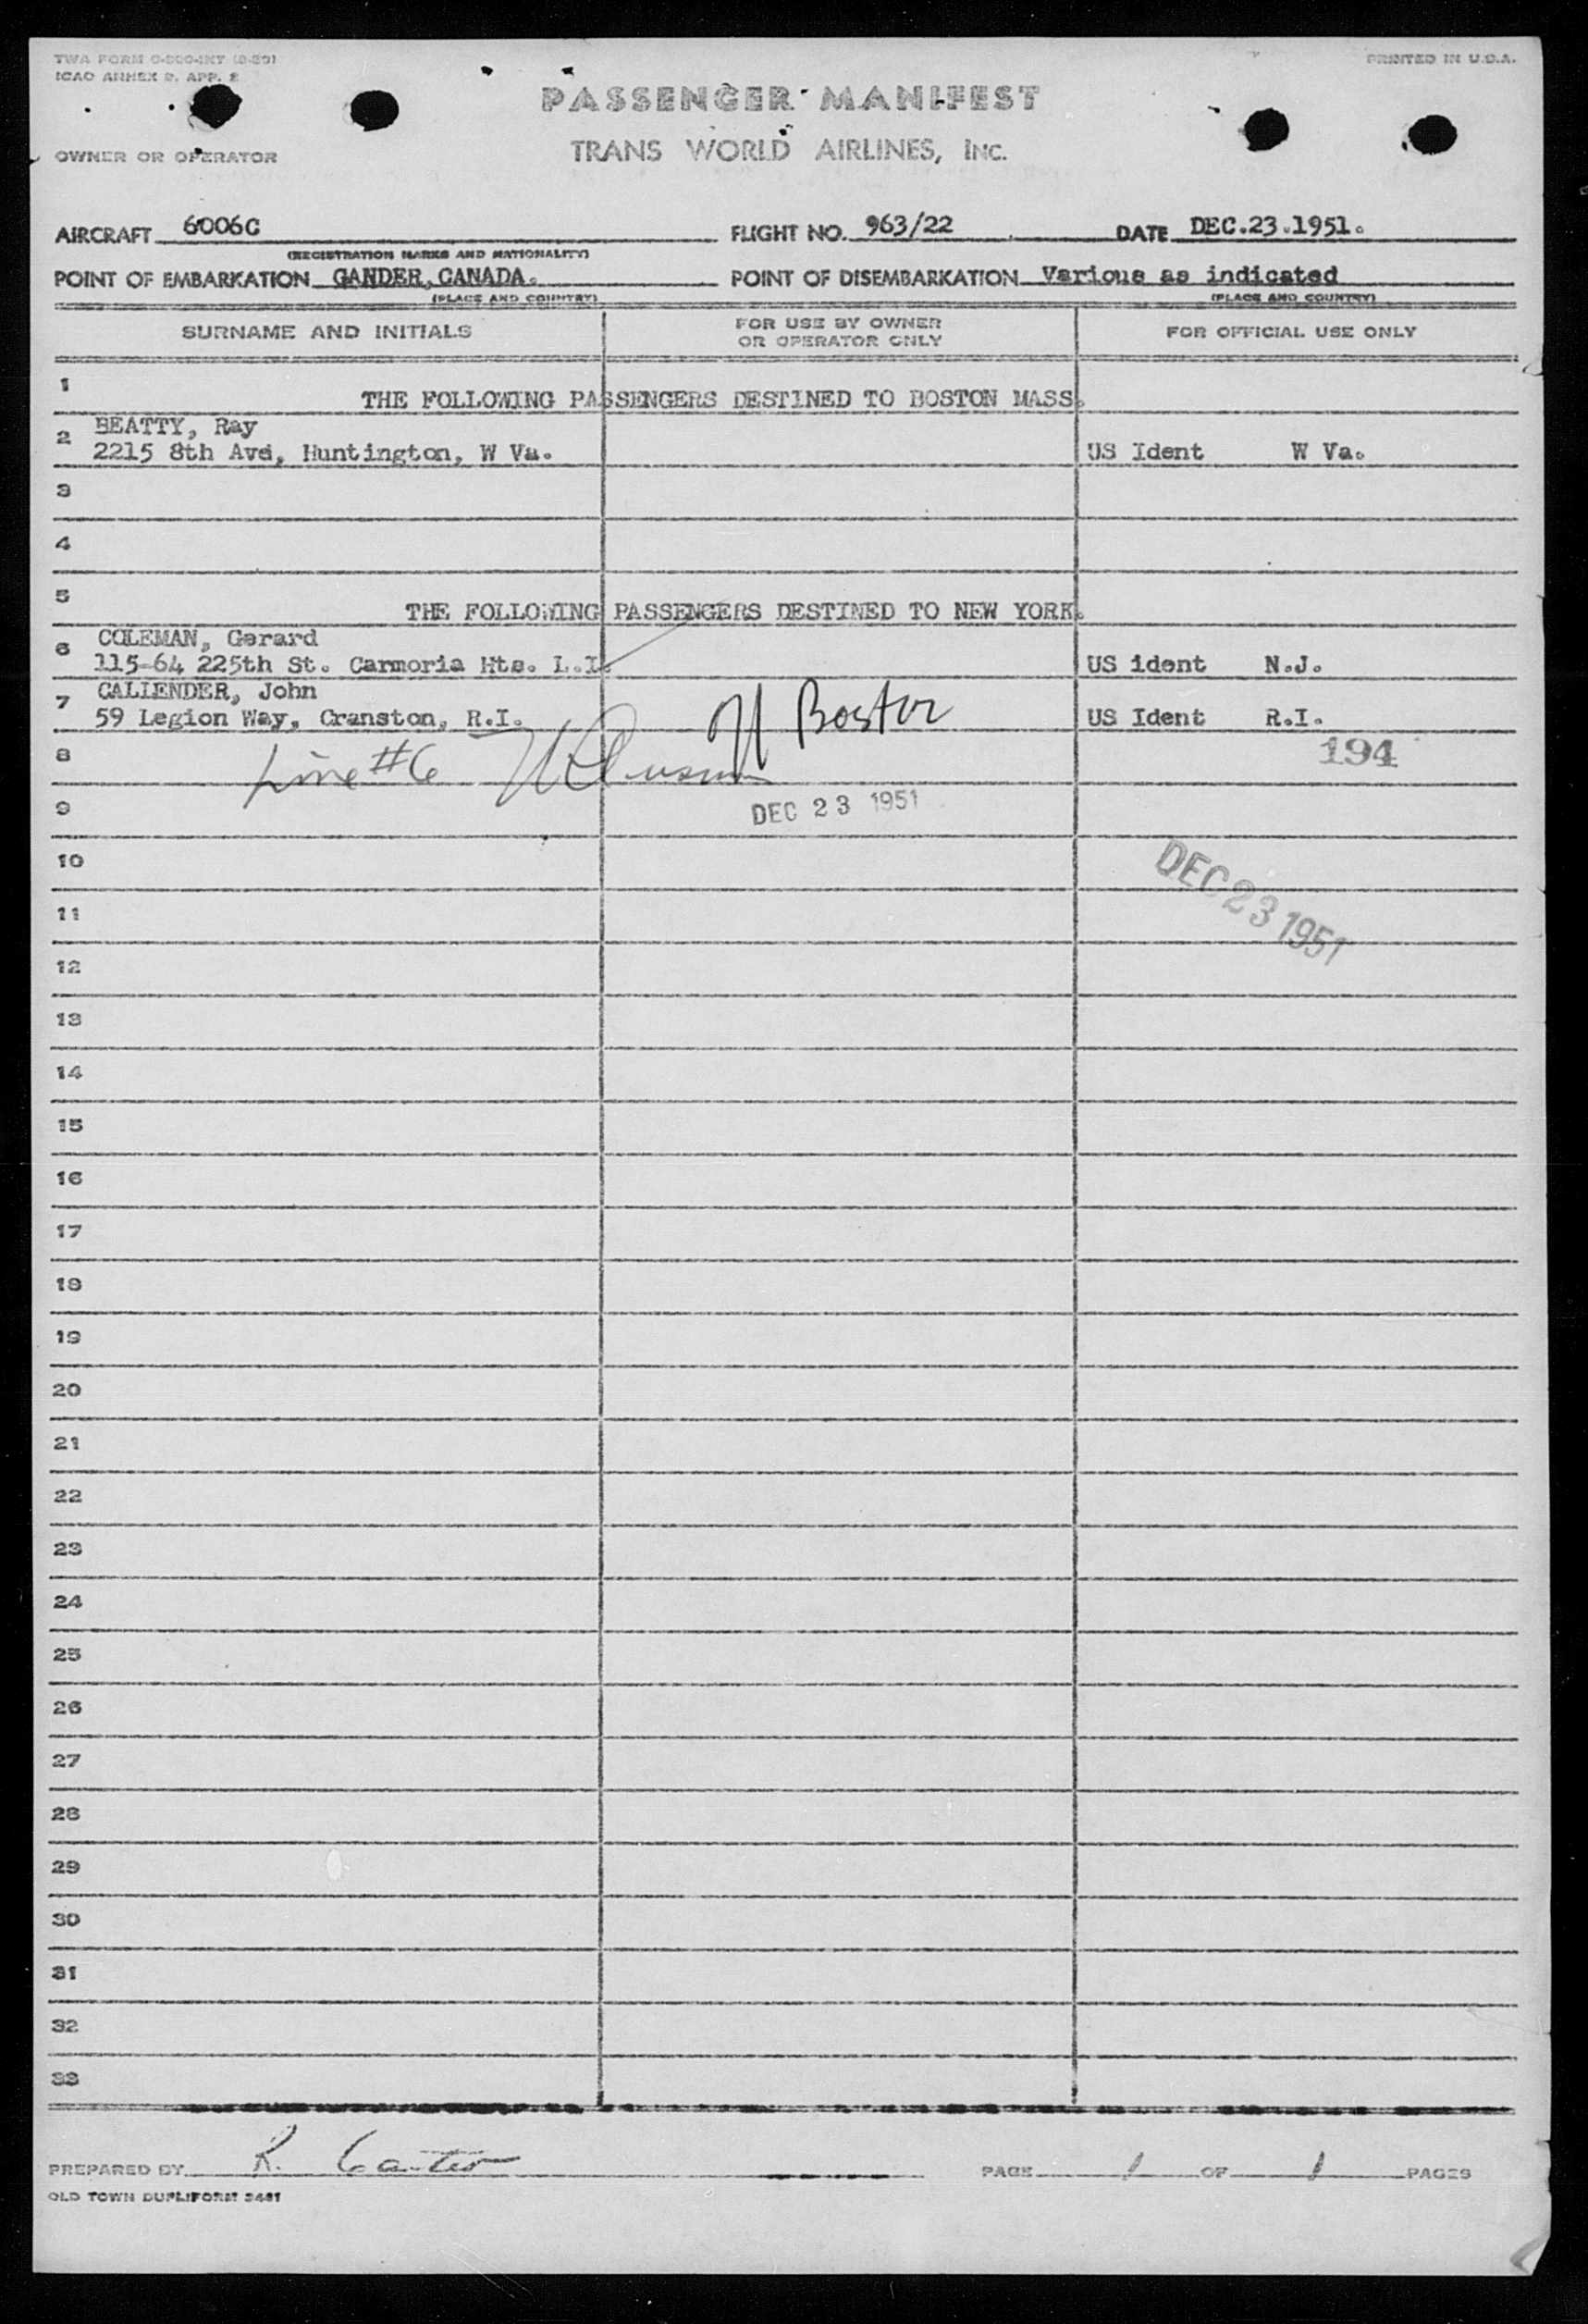 TWA FORM
ICAO ANNEX 9. APP. 2
PRINTED IN U.S.A.
PASSENGER MANIFEST
OWNER OR OPERATOR
TRANS WORLD AIRLINES, INC.
AIRCRAFT 6006C FLIGHT NO. 963/22 DATE DEC.23.1951.
(REGISTRATION MARKS AND NATIONALITY)
POINT OF EMBARKATION GANDER, CANADA. POINT OF DISEMBARKATION Various as indicated
(PLACE AND COUNTRY) (PLACE AND COUNTRY)
SURNAME AND INITIALS FOR USE BY OWNER OR OPERATOR ONLY FOR OFFICIAL USE ONLY
1
THE FOLLOWING PASSENGERS DESTINED TO BOSTON MASS.
BEATTY, Ray
2 2215 8th Ave, Huntington, W Va. US Ident W Va.
3
4
5
THE FOLLOWING PASSENGERS DESTINED TO NEW YORK.
COLEMAN, Gerard
6 115-64 225th St. Carmoria Hts. L.I. US ident N.J.
CALLENDER, John
7 59 Legion Way, Cranston, R.I. Boston US Ident R.I.
8 Line #6 194
9 DEC 23 1951
10
DEC 23 1951
11
12
13
14
15
16
17
18
19
20
21
22
23
24
25
26
27
28
29
30
31
32
33
PREPARED BY R. Carter PAGE 1 OF 1 PAGES
OLD TOWN DUPLIFORM 3481